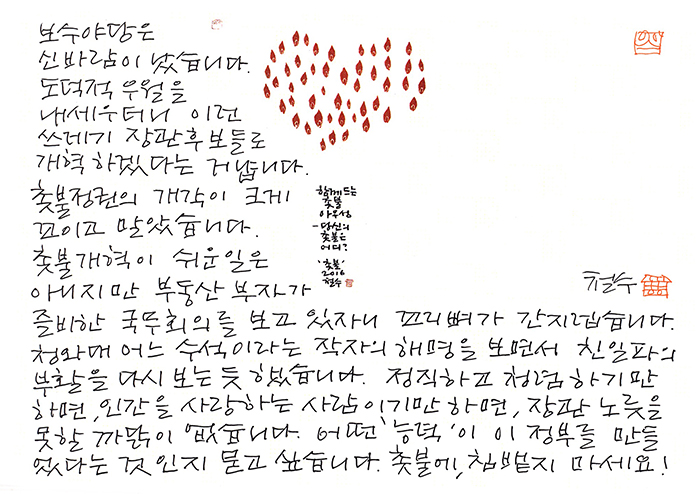 보수야당은
신바람이 났습니다.
도덕적 우월을
내세우더니 이런
쓰레기 장관후보들로
개혁하겠다는 거냅니다.
촛불정권의 개각이 크게
꼬이고 말았습니다.
촛불개혁이 쉬운일은
아니지만 부동산 부자가
즐비한 국무회의를 보고 있자니 꼬리뼈가 간지럽습니다.
청와대 어느 수석이라는 작자의 해명을 보면서 친일파의
부활을 다시 보는 듯 했습니다. 정직하고 청렴하기만
하면, 인간을 사랑하는 사람이기만 하면, 장관 노릇을
못할 까닭이 없습니다. 어떤 '능력'이 이 정부를 만들
었다는 것인지 묻고 싶습니다. 촛불에, 침뱉지 마세요!
함께 드는
촛불
아우성
-당신의
촛불은
어디?
'촛불'
2016
철수
철수